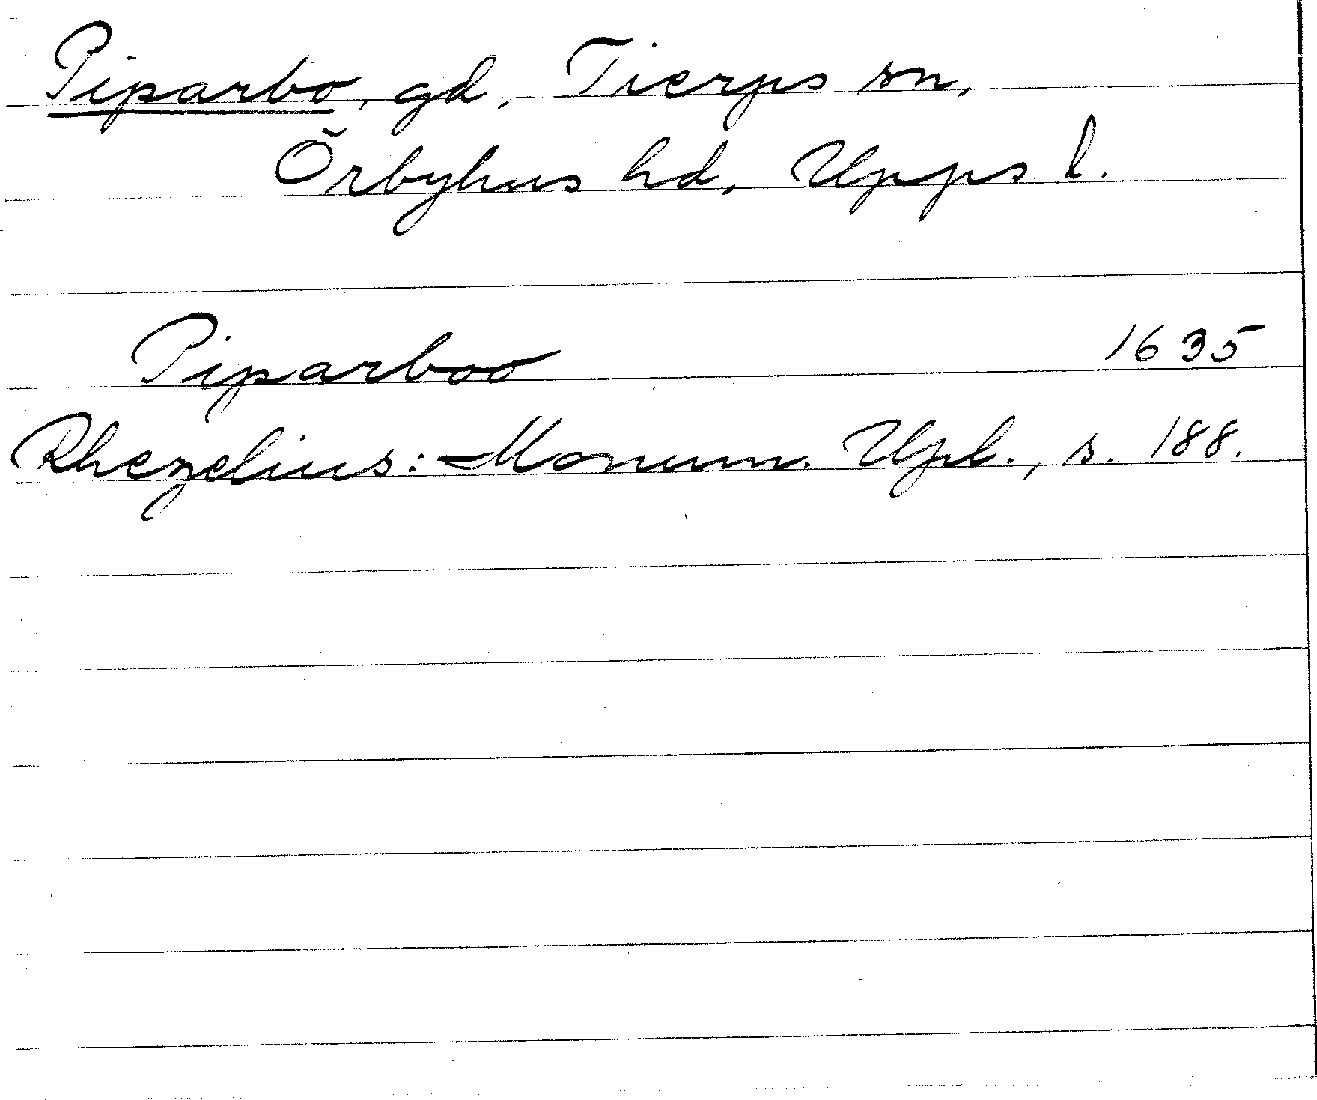 Piparbo, gd, Tierps sn,
Örbyhus hd, Upps l.
Piparboo 1635
Rhezelius: Monum. Upl., s. 188.